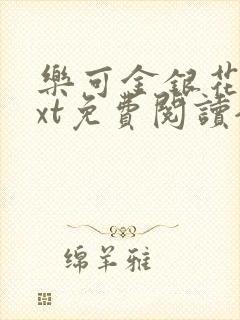 樂可金銀花
xt免費閱讀
绵羊雅